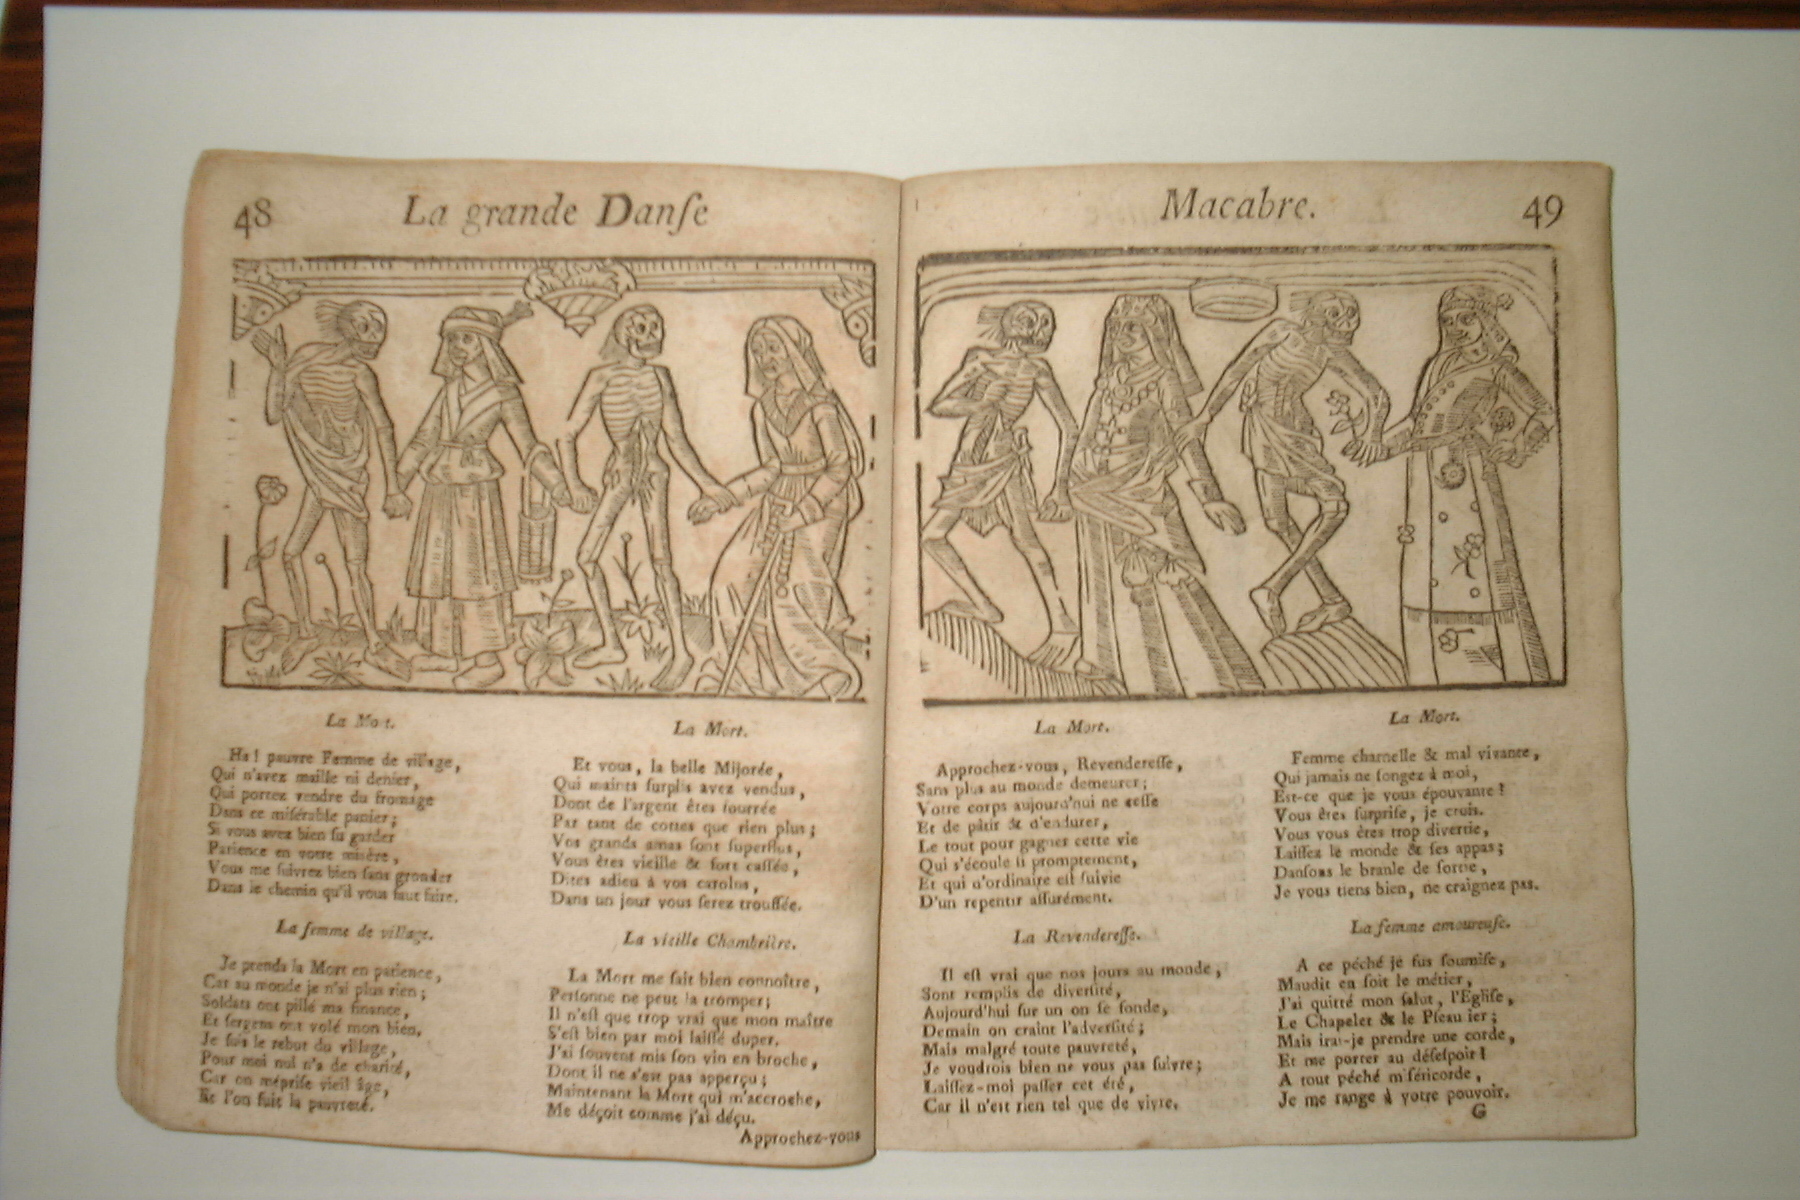 48
La grande Danſe
La Mort.
Ha! pauvre Femme de village,
Qui n'avez maille ni denier,
Qui portez vendre du fromage
Dans ce miſérable panier;
Si vous avez bien ſu garder
Patience en votre miſère,
Vous me ſuivrez bien ſans gronder
Dans le chemin qu'il vous faut faire.
La femme de village.
Je prends la Mort en patience,
Car au monde je n'ai plus rien;
Soldats ont pillé ma finance,
Et ſergens ont volé mon bien.
Je ſuis le rebut du village,
Pour moi nul n'a de charité,
Car on mépriſe vieil âge,
Et l'on fuit la pauvreté.
La Mort.
Et vous, la belle Mijorée,
Qui maints ſurplis avez vendus,
Dont de l'argent êtes fourrée
Par tant de cottes que rien plus;
Vos grands amas ſont ſuperflus,
Vous êtes vieille & fort caſſée,
Dites adieu à vos carolus,
Dans un jour vous ſerez trouſſée.
La vieille Chambrière.
La Mort me fait bien connoître,
Perſonne ne peut la tromper;
Il n'eſt que trop vrai que mon maître
S'eſt bien par moi laiſſé duper.
J'ai ſouvent mis ſon vin en broche,
Dont il ne s'eſt pas apperçu;
Maintenant la Mort qui m'accroche,
Me déçoit comme j'ai déçu.
Approchez-vous
Macabre.
49
La Mort.
Approchez-vous, Revendereſſe,
Sans plus au monde demeurer;
Votre corps aujourd'hui ne ceſſe
Et de pâtir & d'endurer,
Le tout pour gagner cette vie
Qui s'écoule ſi promptement,
Et qui d'ordinaire eſt ſuivie
D'un repentir aſſurément.
La Revendereſſe.
Il eſt vrai que nos jours au monde,
Sont remplis de diverſité,
Aujourd'hui ſur un on ſe fonde,
Demain on craint l'adverſité;
Mais malgré toute pauvreté,
Je voudrois bien ne vous pas ſuivre;
Laiſſez-moi paſſer cet été,
Car il n'eſt rien tel que de vivre.
La Mort.
Femme charnelle & mal vivante,
Qui jamais ne ſongez à moi,
Eſt-ce que je vous épouvante?
Vous êtes ſurpriſe, je crois.
Vous vous êtes trop divertie,
Laiſſez le monde & ſes appas;
Danſons le branle de ſortie,
Je vous tiens bien, ne craignez pas.
La femme amoureuſe.
A ce péché je fus ſoumiſe,
Maudit en ſoit le métier,
J'ai quitté mon ſalut, l'Egliſe,
Le Chapelet & le Pſeautier;
Mais irai-je prendre une corde,
Et me porter au déſeſpoir!
A tout péché miſéricorde,
Je me range à votre pouvoir.
G